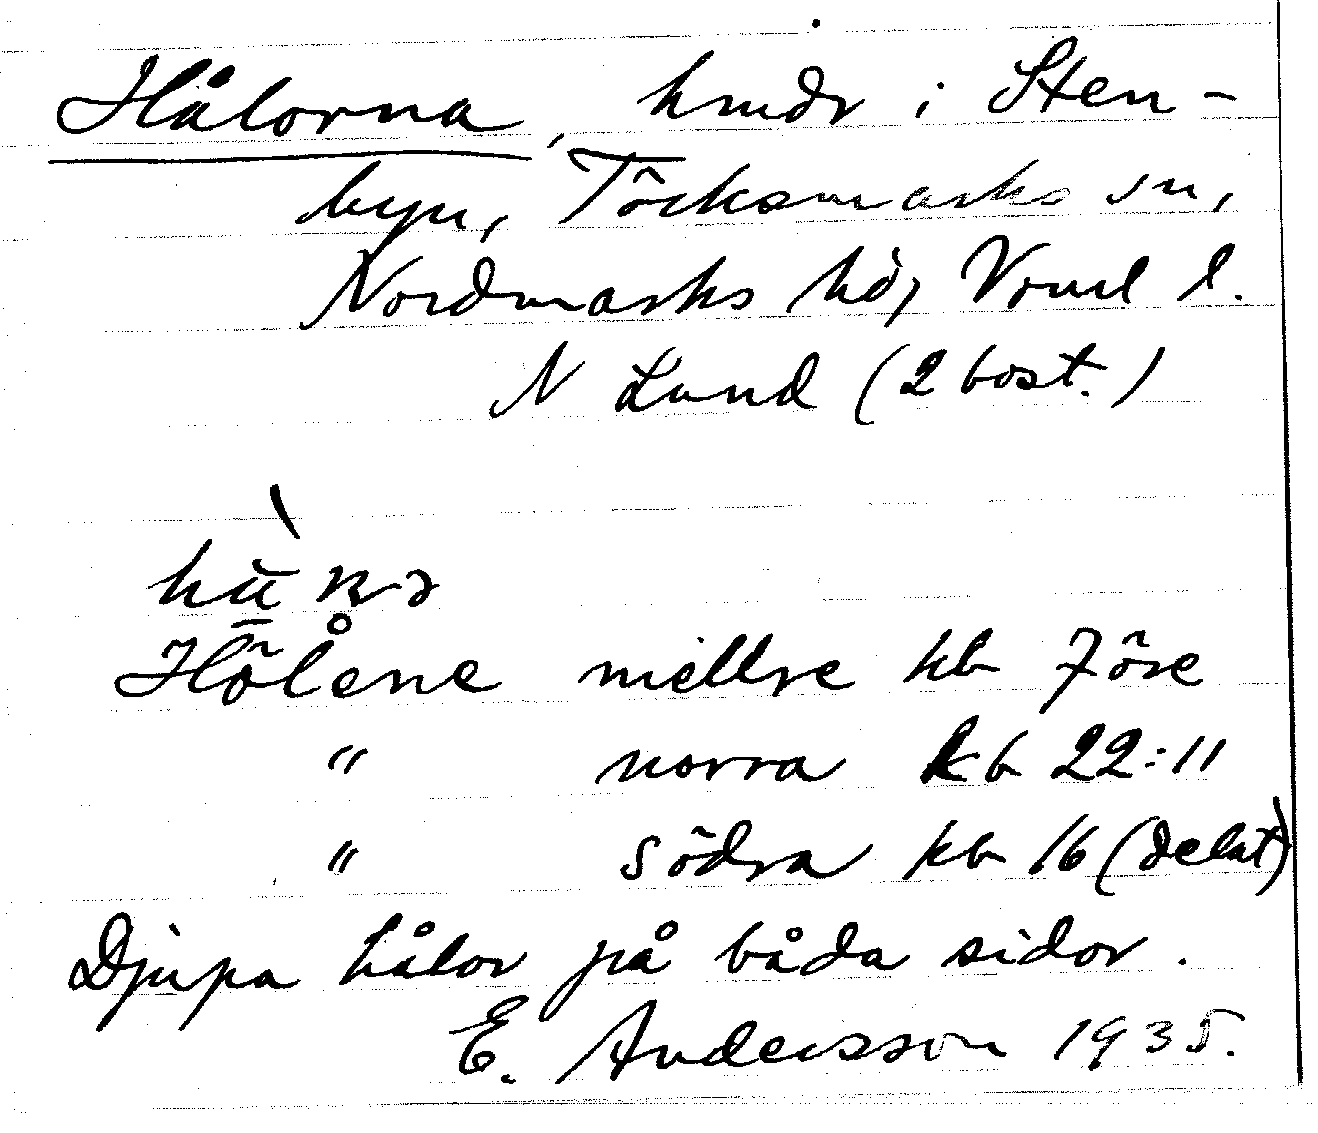 Hålorna, hmdr i Sten-
byn, Töcksmarks sn,
Nordmarks hd, Vrml l.
N Lund (2 bost.)
Hölene mellre kb Före
" norra kb 22:11
" södra kb 16 (delat)
Djupa hålor på båda sidor.
E. Andersson 1935.